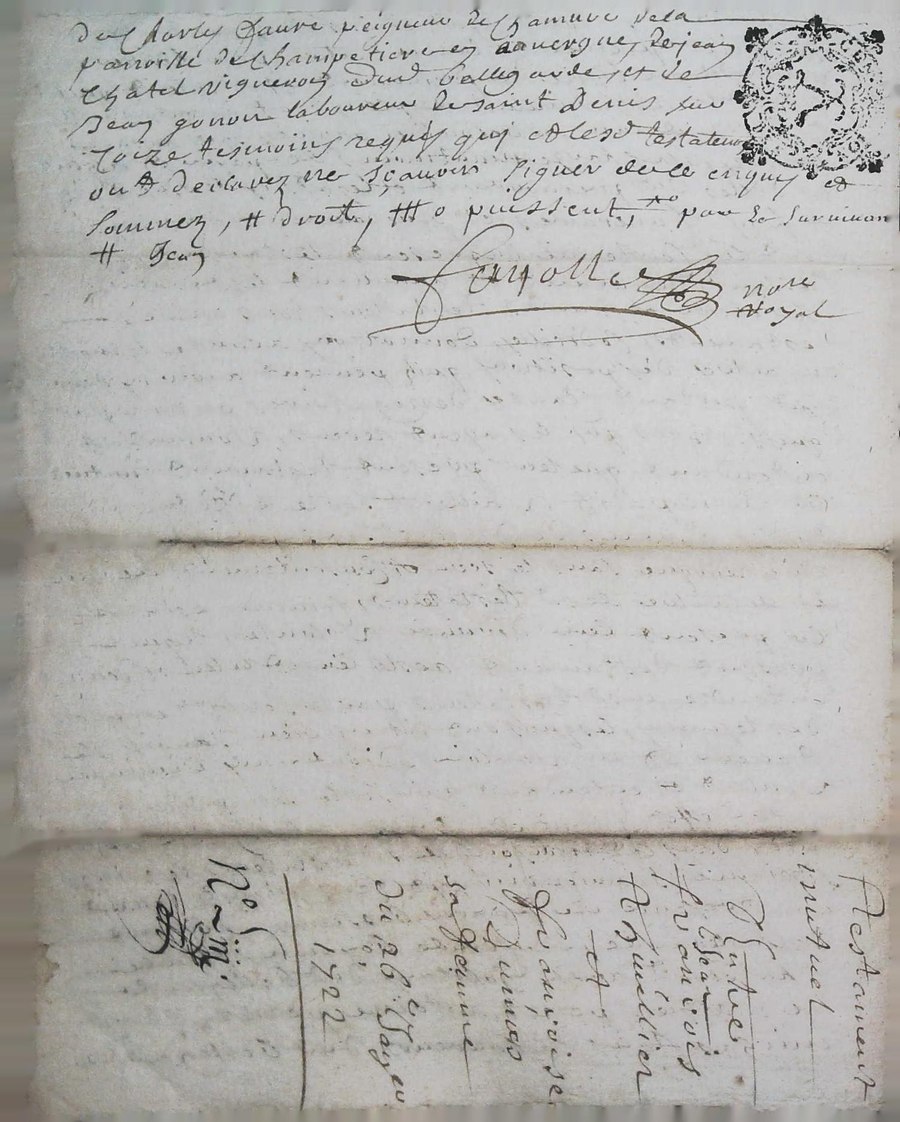 de Charles faure peigneur de Chamure de la
parroisse de Champetiere en auvergne, de jean
Chatel vigneron dud bellegarde, et de
Jean gonon laboureur de saint Denis sur
Coize tesmoins requis qui et lesd testateurs
ont declarez ne sçavoir signer de ce enquis et
sommez, # droit, ## o puissent, par le survivan
# Jean
fayolle nore
Royal
Testament
mutuel
Entre
Jean
francois
Thuillier
et
francoise
Dumas
sa famme
du 26e Janver
1722
No